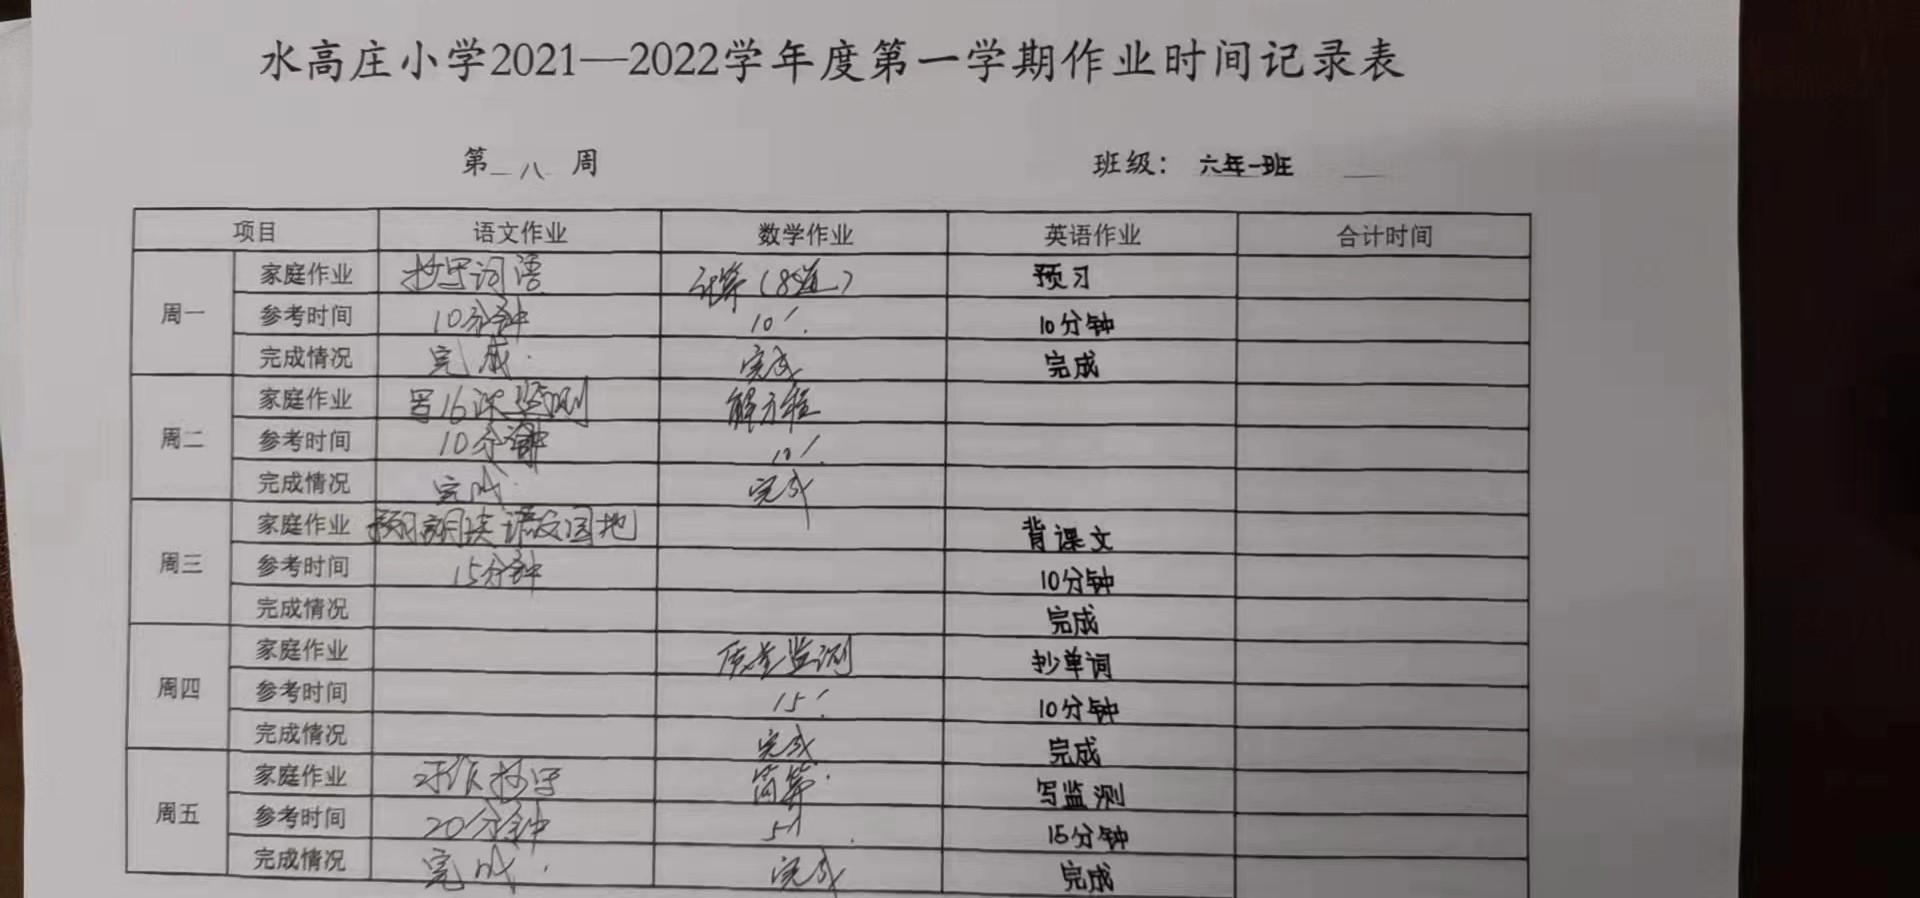 水高庄小学2021—2022学年度第一学期作业时间记录表
第 八 周 班级： 六年一班
项目 语文作业 数学作业 英语作业 合计时间
周一
家庭作业 抄写词语 计算（8道） 预习
参考时间 10分钟 10′ 10分钟
完成情况 完成 完成 完成
周二
家庭作业 写16课监测 解方程
参考时间 10分钟 10′
完成情况 完成 完成
周三
家庭作业 预习朗读语文园地 背课文
参考时间 15分钟 10分钟
完成情况 完成
周四
家庭作业 质量监测 抄单词
参考时间 15′ 10分钟
完成情况 完成 完成
周五
家庭作业 习作抄写 简算 写监测
参考时间 20分钟 5′ 15分钟
完成情况 完成 完成 完成